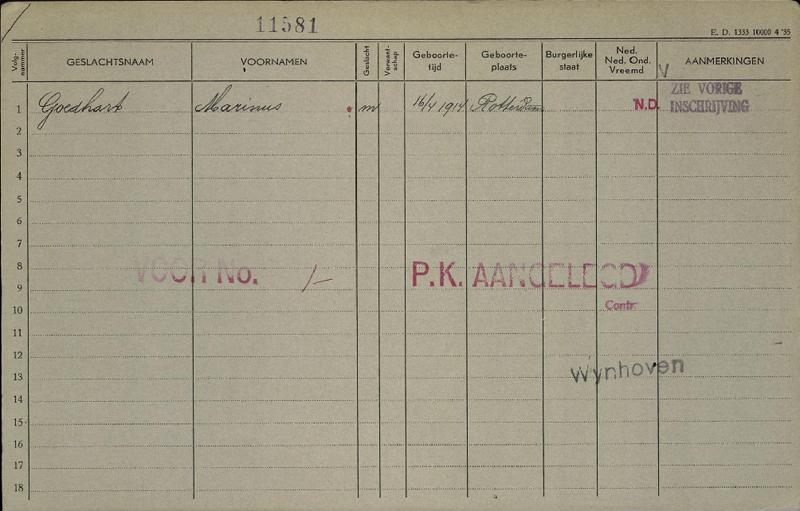 11581
E. D. 1333 10000 4 '35
Volg-nummer GESLACHTSNAAM VOORNAMEN Geslacht Verwant-schap Geboorte-tijd Geboorte-plaats Burgerlijke staat Ned. Ned. Ond. Vreemd V AANMERKINGEN
1 Goedhart Marinus m 16/4 1914 Rotterdam N.D. ZIE VORIGE INSCHRIJVING
2
3
4
5
6
7
8 VOOR No. 1/- P.K. AANGELEGD
9
10 Contr.
11
12
13 Wynhoven
14
15
16
17
18